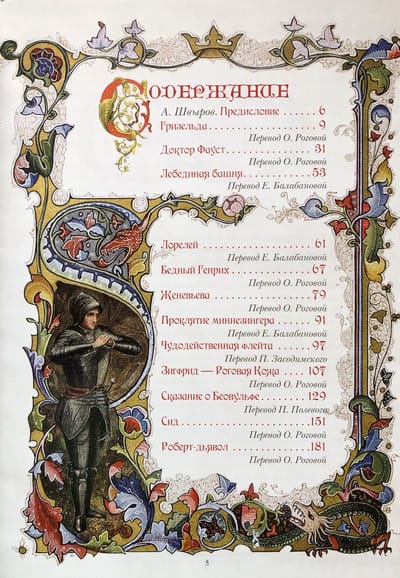 Содержание
А. Швыров. Предисловие ...... 6
Гризельда ................ 9
Перевод О. Роговой
Доктор Фауст ............. 31
Перевод О. Роговой
Лебединая башня .......... 53
Перевод Е. Балабановой
Лорелей .................. 61
Перевод Е. Балабановой
Бедный Генрих ............ 67
Перевод О. Роговой
Женевьева ................ 79
Перевод О. Роговой
Проклятие миннезингера ..... 91
Перевод Е. Балабановой
Чудодейственная флейта ..... 97
Перевод П. Засодимского
Зигфрид — Роговая Кожа .. 107
Перевод О. Роговой
Сказание о Беовульфе ...... 129
Перевод П. Полевого
Сид ...................... 151
Перевод О. Роговой
Роберт-дьявол ............ 181
Перевод О. Роговой
5